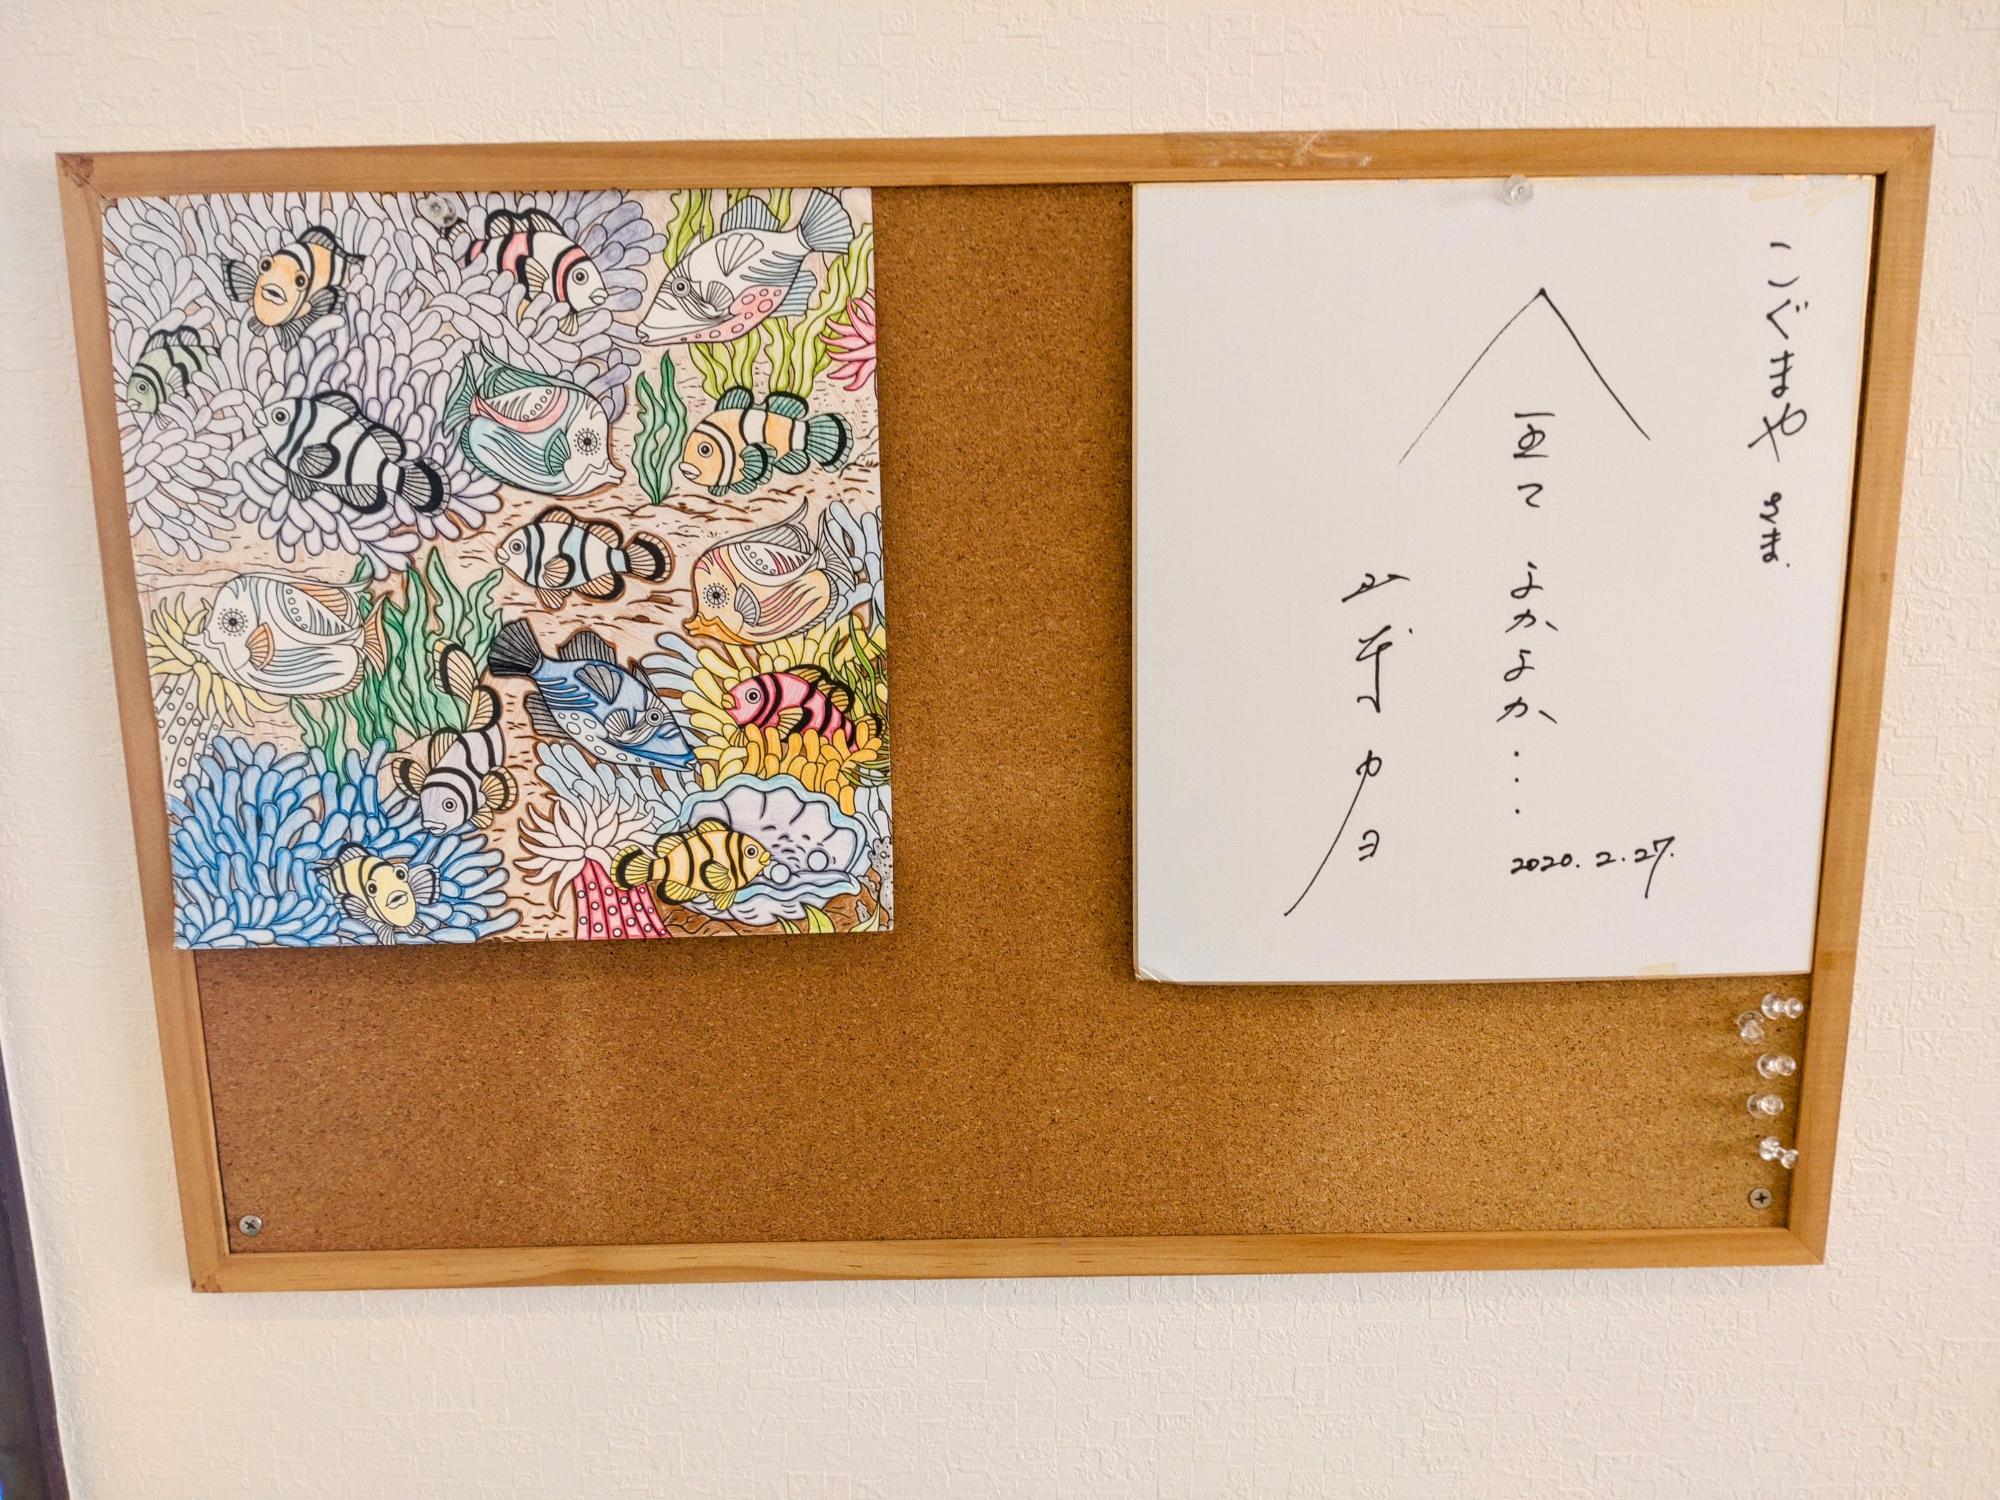 こぐまや さま
全て よかよか・・・
2020.2.27.